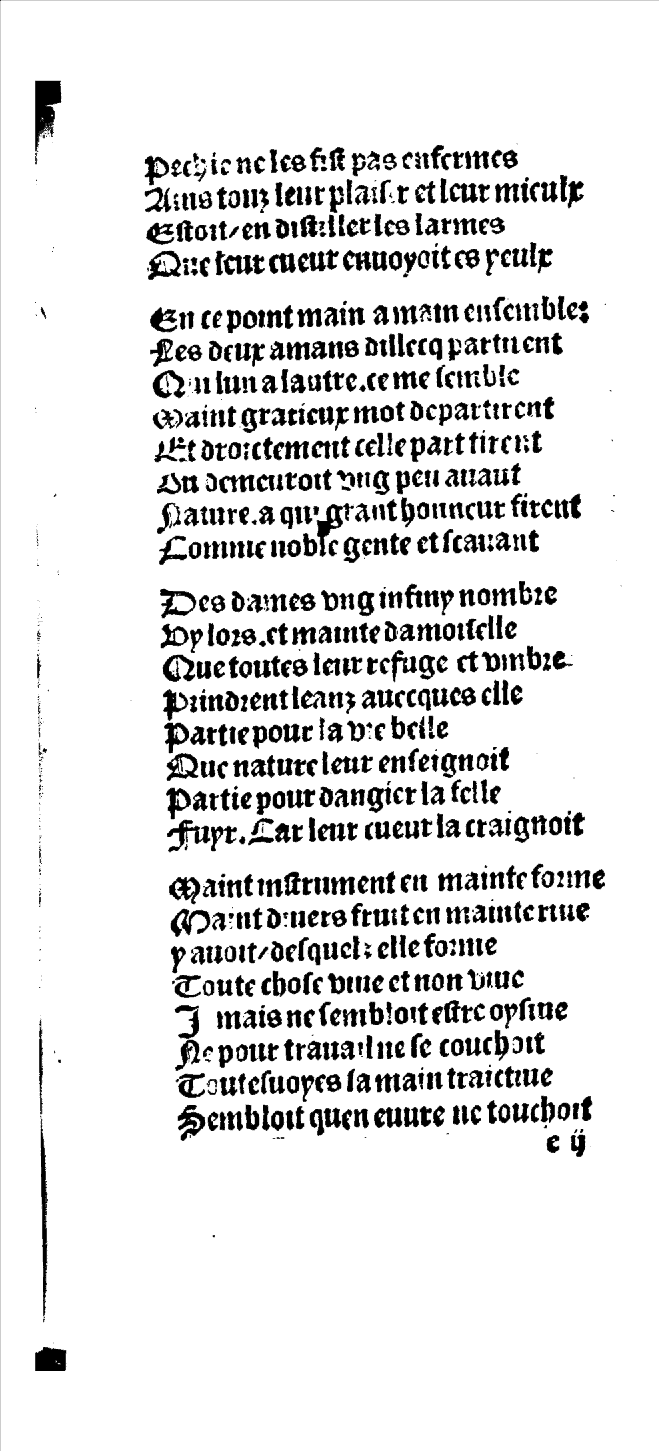 Pechie ne les fist pas enfermes
Ains touz leur plaisir et leur mieulx
Estoit/en distiller les larmes
Que leur cueur enuoyoit es yeulx
En ce point main a main ensemble:
Les deux amans dillecq partirent
Qui lun a lautre.ce me semble
Maint gratieux mot departirent
Et droictement celle part tirent
Ou demeuroit vng peu auant
Nature.a qui grant honneur firent
Comme noble gente et scauant
Des dames vng infiny nombre
Vy lors.et mainte damoiselle
Que toutes leur refuge et vmbre
Prindrent leanz auecques elle
Partie pour la vie belle
Que nature leur enseignoit
Partie pour dangier la felle
Fuyr.Car leur cueur la craignoit
Maint instrument en mainte forme
Maint diuers fruit en mainte riue
y auoit/desquelz elle forme
Toute chose viue et non viue
Jamais ne sembloit estre oysiue
Ne pour trauail ne se couchoit
Toutesuoyes sa main traictiue
Sembloit quen euure ne touchoit
e ij